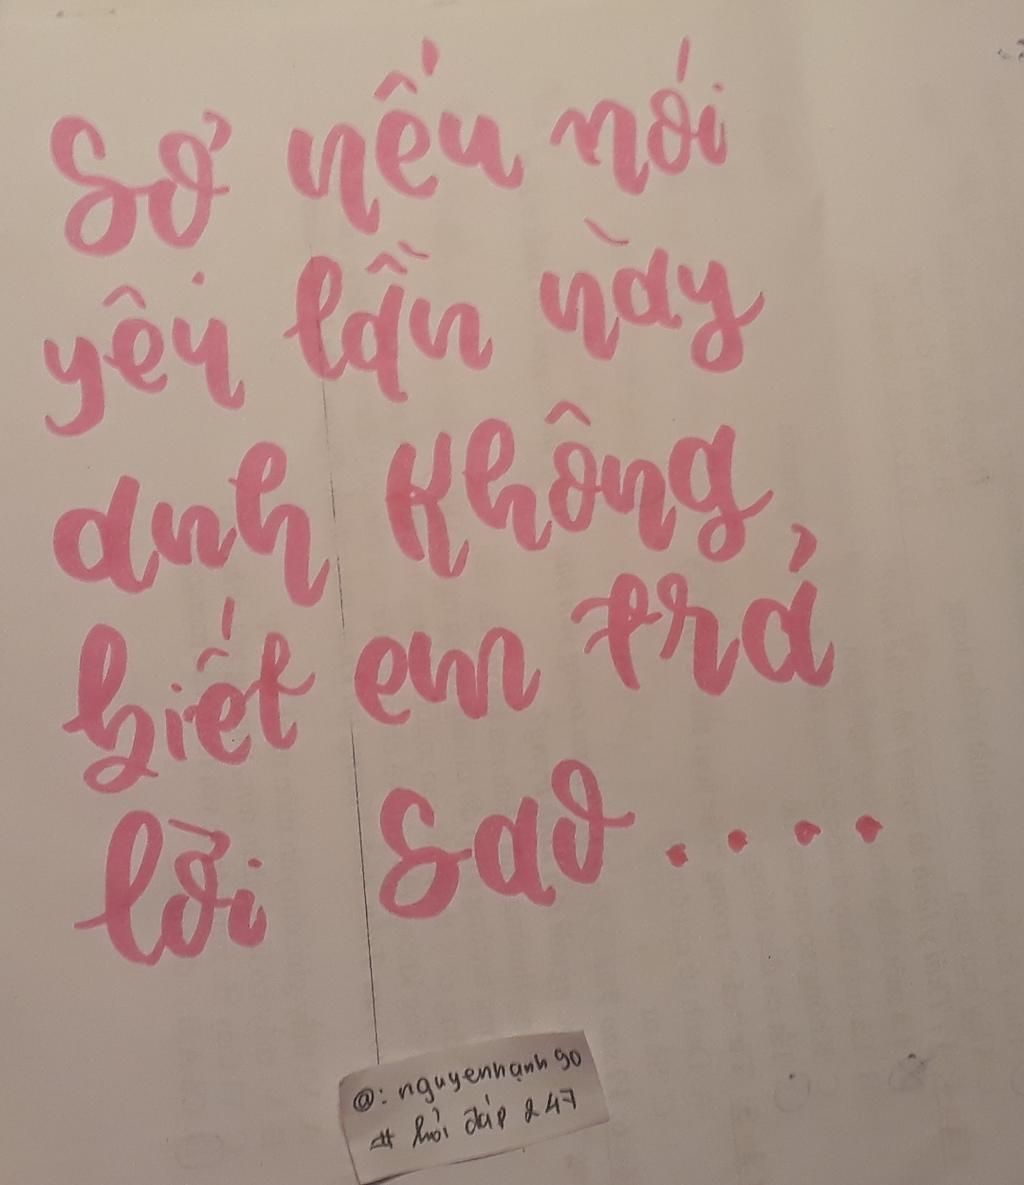 Sợ nếu nói
yêu lần này
anh không
biết em trả
lời sao....
@: nguyenhạnh90
# hỏi đáp 247